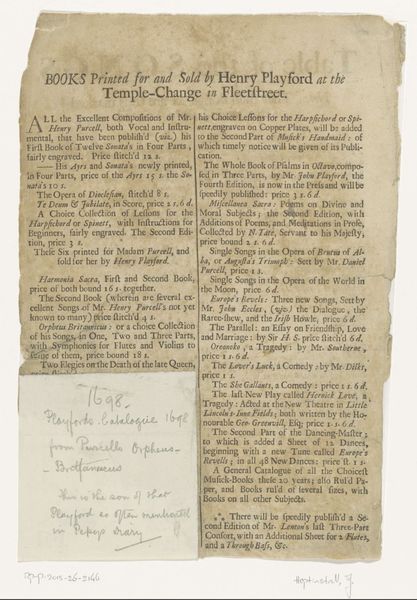 BOOKS Printed for and Sold by Henry Playford at the
Temple-Change in Fleetstreet.
ALL the Excellent Compositions of Mr.
Henry Purcell, both Vocal and Instru-
mental, that have been publish'd (viz.) his
First Book of Twelve Sonata's in Four Parts,
fairly engraved. Price stitch'd 12 s.
—— His Ayrs and Sonata's newly printed,
in Four Parts, price of the Ayrs 15 s. the So-
nata's 10 s.
The Opera of Dioclesian, stitch'd 8 s.
Te Deum & Jubilate, in Score, price 2 s. 6 d.
A Choice Collection of Lessons for the
Harpsichord or Spinett, with Instructions for
Beginners, fairly engraved. The Second Edi-
tion, price 3 s.
These Six printed for Madam Purcell, and
sold for her by Henry Playford.
Harmonia Sacra, First and Second Book,
price of both bound 16 s. together.
The Second Book (wherein are several ex-
cellent Songs of Mr. Henry Purcell's not yet
known to many) price stitch'd 4 s.
Orpheus Britannicus: or a choice Collection
of his Songs, in One, Two and Three Parts,
with Symphonies for Flutes and Violins to
some of them, price bound 18 s.
Two Elegies on the Death of the late Queen,
1698.
Playfords Catalogue 1698
from Purcells Orpheus
Britannicus
This is the son of that
Playford so often mentioned
in Pepys Diary
his Choice Lessons for the Harpsichord or Spi-
nett, engraven on Copper Plates, will be added
to the Second Part of Musick's Handmaid: of
which timely notice will be given of its Publi-
cation.
The Whole Book of Psalms in Octavo, compo-
sed in Three Parts, by Mr John Playford, the
Fourth Edition, is now in the Press and will be
speedily published: price 3 s. 6 d.
Miscellanea Sacra: Poems on Divine and
Moral Subjects; the Second Edition, with
Additions of Poems, and Meditations in Prose,
Collected by N. Tate, Servant to his Majesty,
price bound 2 s. 6 d.
Single Songs in the Opera of Brutus of Al-
ba, or Augusta's Triumph: Sett by Mr. Daniel
Purcell, price 1 s.
Single Songs in the Opera of the World
in the Moon, price 6 d.
Europe's Revels: Three new Songs, Sett by
Mr. John Eccles, (viz.) the Dialogue, the
Raree-show, and the Irish Howle, price 6 d.
The Parallel: an Essay on Friendship, Love
and Marriage: by Sir H. S. price stitch'd 6 d.
Oroonoko, a Tragedy: by Mr. Southerne,
price 1 s. 6 d.
The Lover's Luck, a Comedy: by Mr. Dilks,
price 1 s.
The She Gallants, a Comedy: price 1 s. 6 d.
The last New Play called Heroick Love, a
Tragedy: Acted at the New Theatre in Little
Lincolns-Inne Fields; both written by the Ho-
nourable Geo. Greenvill, Esq; price 1 s. 6 d.
The Second Part of the Dancing-Master;
to which is added a Sheet of 12 Dances,
beginning with a new Tune called Europe's
Revells; in all 48 New Dances: price st. 1 s.
A General Catalogue of all the Choicest
Musick-Books these 20 years; also Rul'd Pa-
per, and Books rul'd of several sizes, with
Books on all other Subjects.
There will be speedily publish'd a Se-
cond Edition of Mr. Lenton's last Three-Part
Consort, with an Additional Sheet for 2 Flutes,
and a Through Bass, &c.